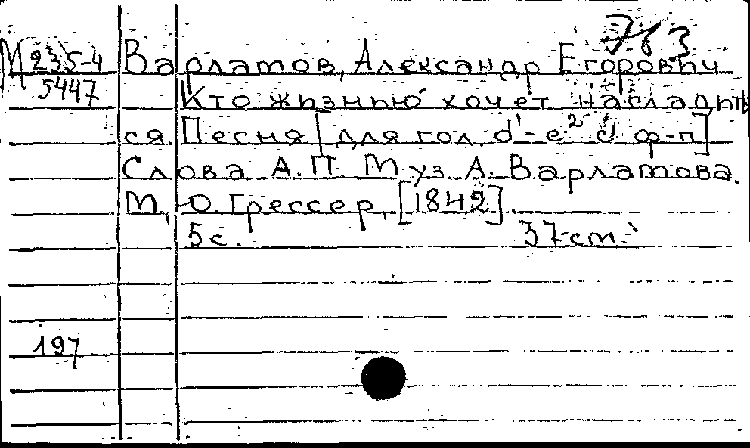 763
М 235-4 Варламов, Александр Егорович
5447 Кто жизнью хочет насладить
ся. Песня [для гол. d¹-e² с ф-п]
Слова А.П. Муз. А. Варламова.
М., Ю. Грессер, [1842].
5 с. 37 cm.
197